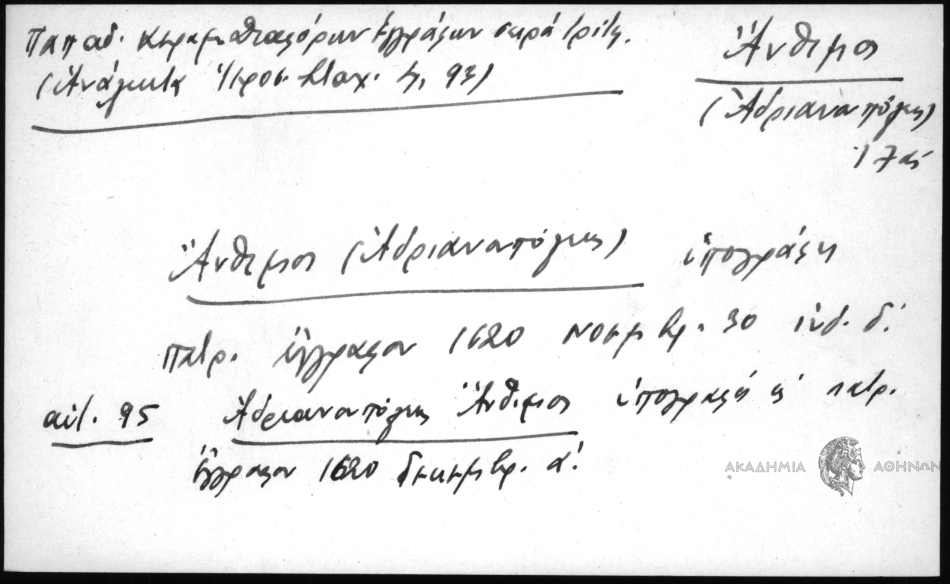 Παπαδ. Κεραμ. διαφόρων ἐγγράφων σειρὰ τρίτη.
(Ἀνάλεκτα Ἱεροσ. Σταχ. Δ, 93)
Ἄνθιμος
(Ἀδριανουπόλεως)
17ος
Ἄνθιμος (Ἀδριανουπόλεως) ὑπογράφει
πατρ. ἔγγραφον 1620 νοεμβρ. 30 ἰνδ. δ'.
αὐτ. 95 Ἀδριανουπόλεως Ἄνθιμος ὑπογράφει πατρ.
ἔγγραφον 1620 δεκεμβρ. α'.
ΑΚΑΔΗΜΙΑ ΑΘΗΝΩΝ